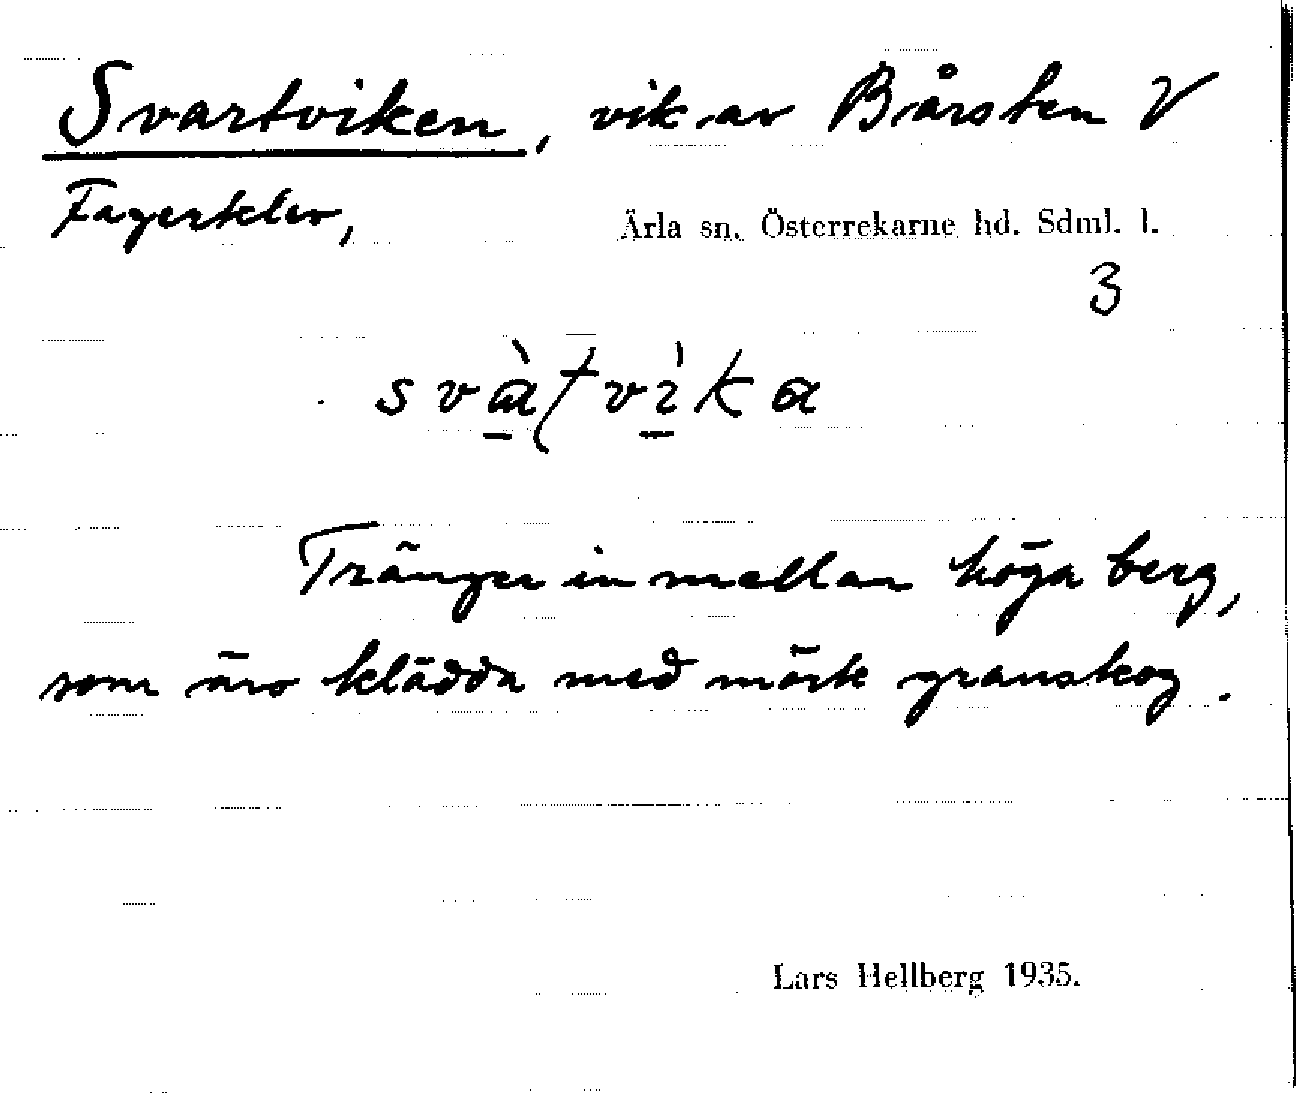 Svartviken, vik av Bårsten V
Fagerklev,
Ärla sn. Österrekarne hd. Sdml. l.
3
Tränger in mellan höga berg,
som äro klädda med mörk granskog.
Lars Hellberg 1935.